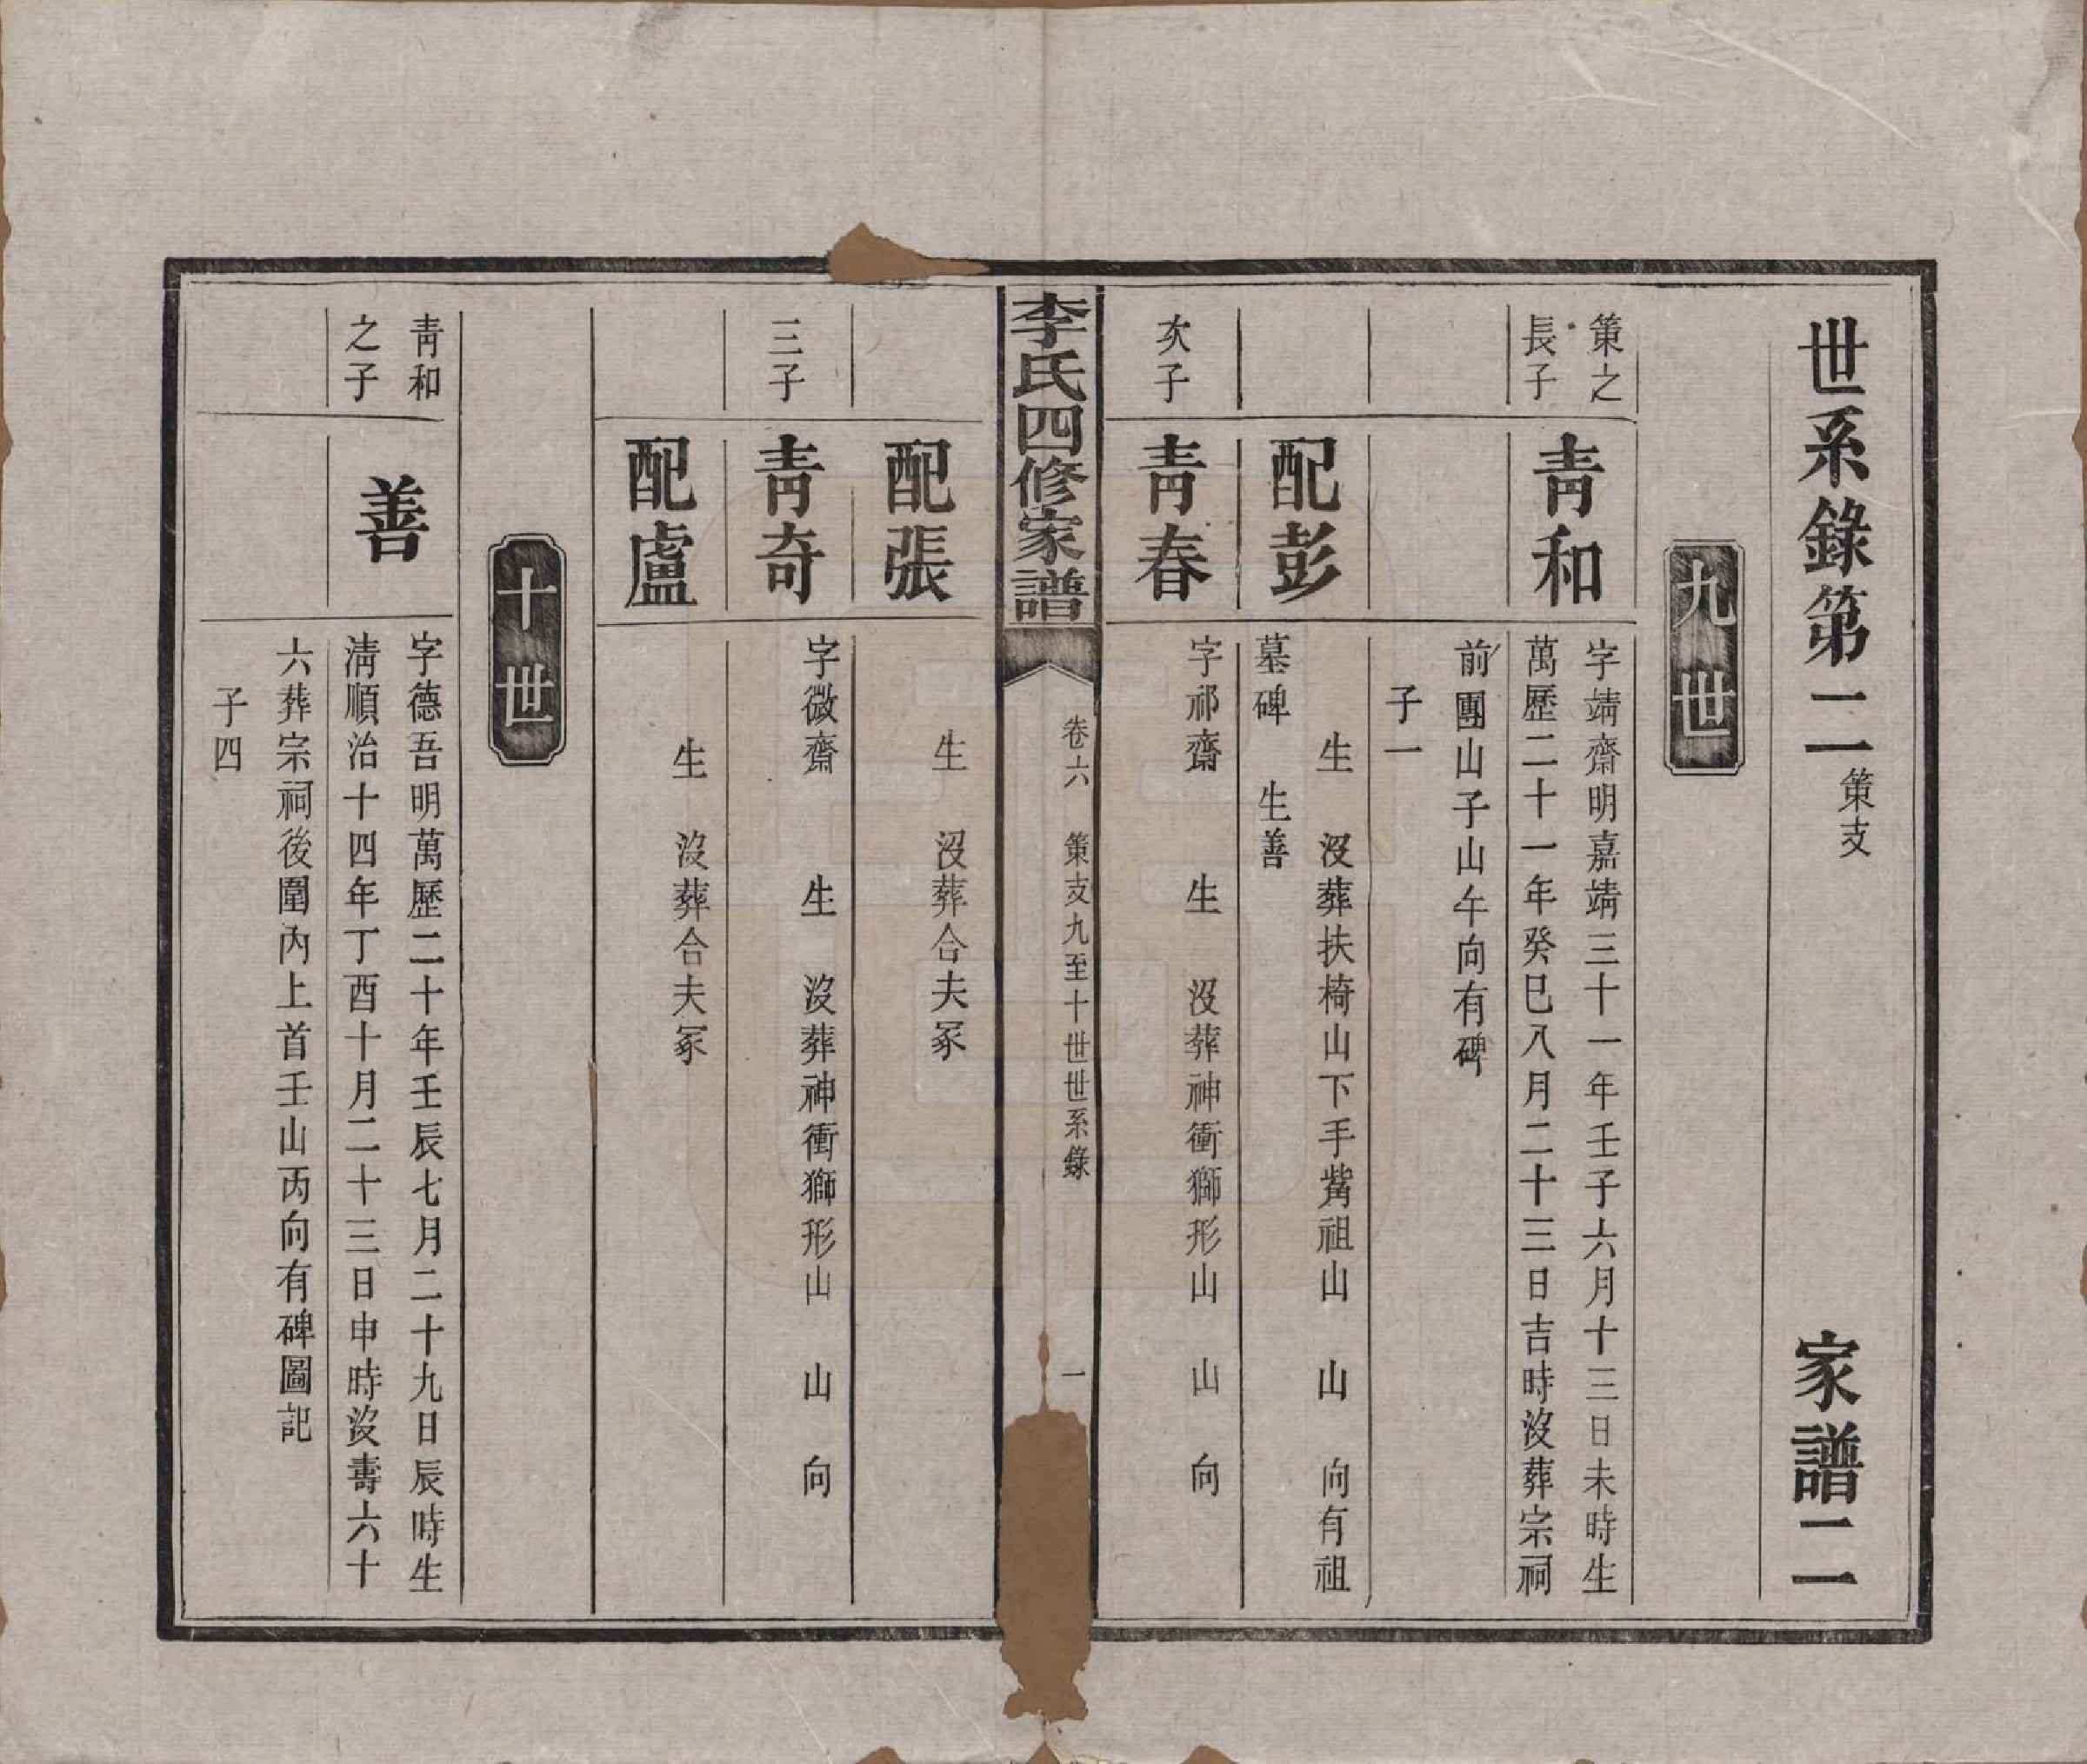 世系錄第二 策支 家譜二
九世
策之
長子
靑和
字靖齋明嘉靖三十一年壬子六月十三日未時生
萬歷二十一年癸巳八月二十三日吉時沒葬宗祠
前團山子山午向有碑
子一
配彭
生 沒葬扶椅山下手觜祖山 山 向有祖
墓碑 生善
次子
靑春
字祁齋 生 沒葬神衝獅形山 山 向
李氏四修家譜
卷六 策支九至十世世系錄 一
配張
生 沒葬合夫冢
三子
靑奇
字微齋 生 沒葬神衝獅形山 山 向
配盧
生 沒葬合夫冢
十世
靑和
之子
善
字德吾明萬歷二十年壬辰七月二十九日辰時生
淸順治十四年丁酉十月二十三日申時沒壽六十
六葬宗祠後圍內上首壬山丙向有碑圖記
子四